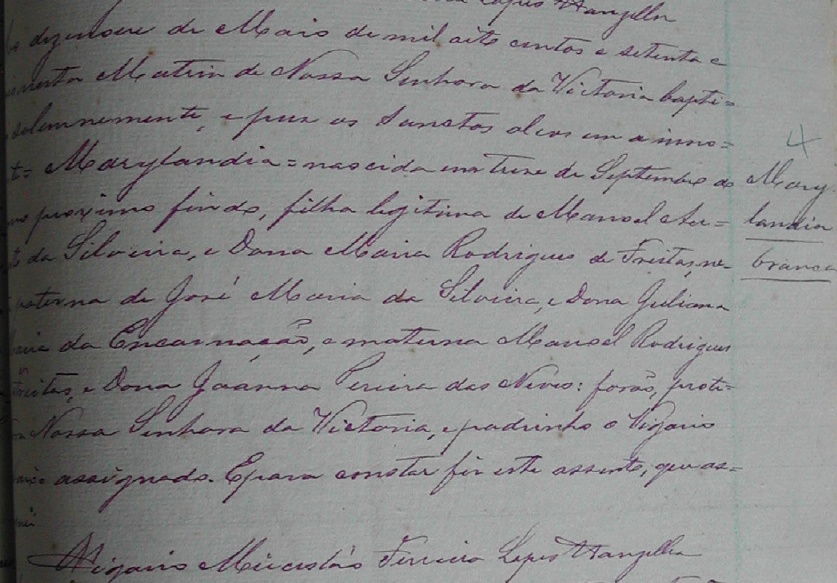 Lopes Wanzeller
dezenove de Maio de mil oito centos e setenta e
Matriz de Nossa Senhora da Victoria bapti=
solemnemente, e puz os Sanctos oleos em a inno=
= Marylandia = nascida em treze de Septembro do
proximo findo, filha legitima de Manoel
da Silveira, e Dona Maria Rodrigues de Freitas, ne-
paterna de José Maria da Silveira, e Dona Juliana
da Encarnação, e materna Manoel Rodrigues
Freitas, e Dona Joanna Pereira das Neves: forão, prote-
Nossa Senhora da Victoria, e padrinho o Vigario
assignado. E para constar fiz este assento, que as=
Vigario Ferreira Lopes Wanzeller
4
Mary
landia
branca